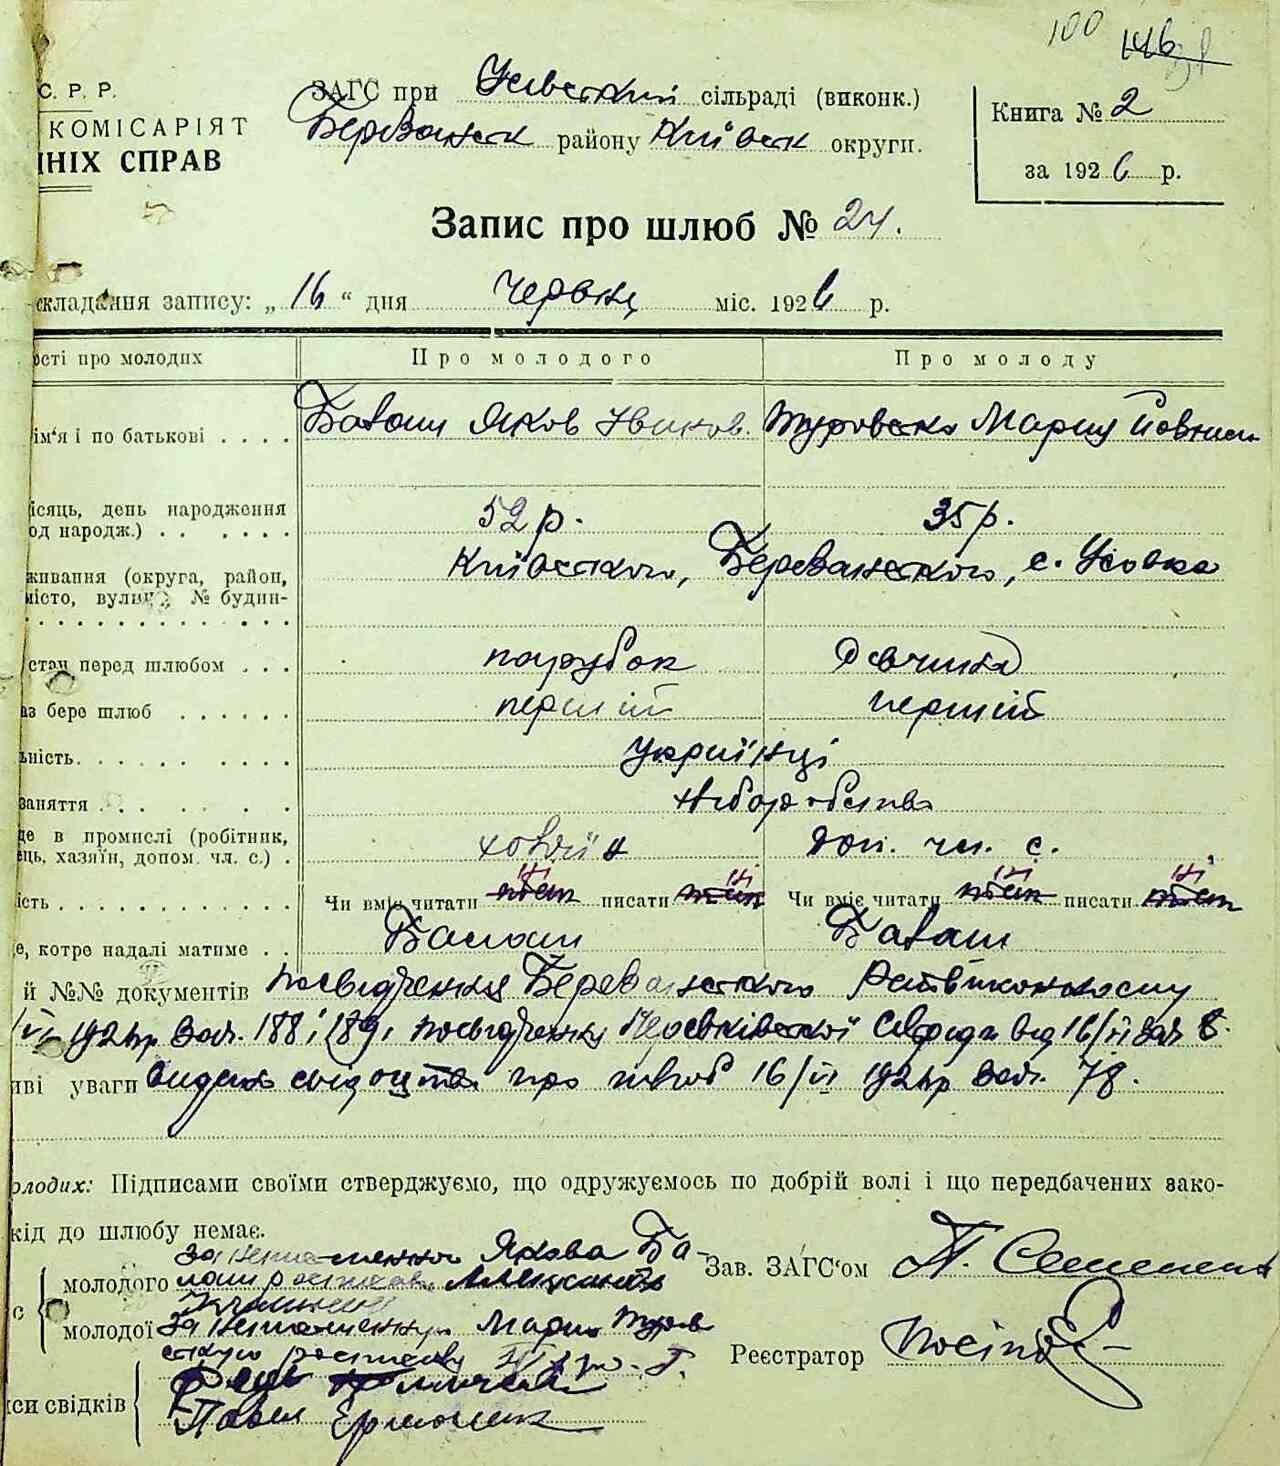 100 146
С. Р. Р.
КОМІСАРІЯТ
НІХ СПРАВ
ЗАГС при Усівській сільраді (виконк.)
Березанськ району Київськ округи.
Книга № 2
за 1926 р.
Запис про шлюб № 24.
складання запису: „16“ дня Червня міс. 1926 р.
ості про молодих Про молодого Про молоду
ім'я і по батькові . . . . Яков Туровська Мария
ісяць, день народження
од народж.) . . . . . . 52 р. 35 р.
живання (округа, район,
місто, вулиця, № будин-
Київського, Березанського, с. Усовка
стан перед шлюбом . . . парубок девчина
аз бере шлюб . . . . . . перший перший
ьність. . . . . . . . . . Українці
заняття . . . . . . . хліборобство
де в промислі (робітник,
ець, хазяїн, допом. чл. с.) . хозяїн доп. чл. с.
ість . . . . . . . . . . . Чи вміє читати ні писати ні Чи вміє читати ні писати ні
е, котре надалі матиме . . Балаш Балаш
й №№ документів посвідчення Березанського Райвиконкому
192 р зач. 188 і 189 і посвідчення Сільради від 16/VI зач
иві уваги видано свідоцтво про шлюб 16/VI 192 р зач. 78.
олодих: Підписами своїми стверджуємо, що одружуємось по добрій волі і що передбачених зако-
кід до шлюбу немає.
за неписьменного Якова Ба-
молодого лаш росписавсь
молодої За неписьменну Марию Туров
ську росписавсь
Зав. ЗАГС'ом
Реєстратор
си свідків
Павел